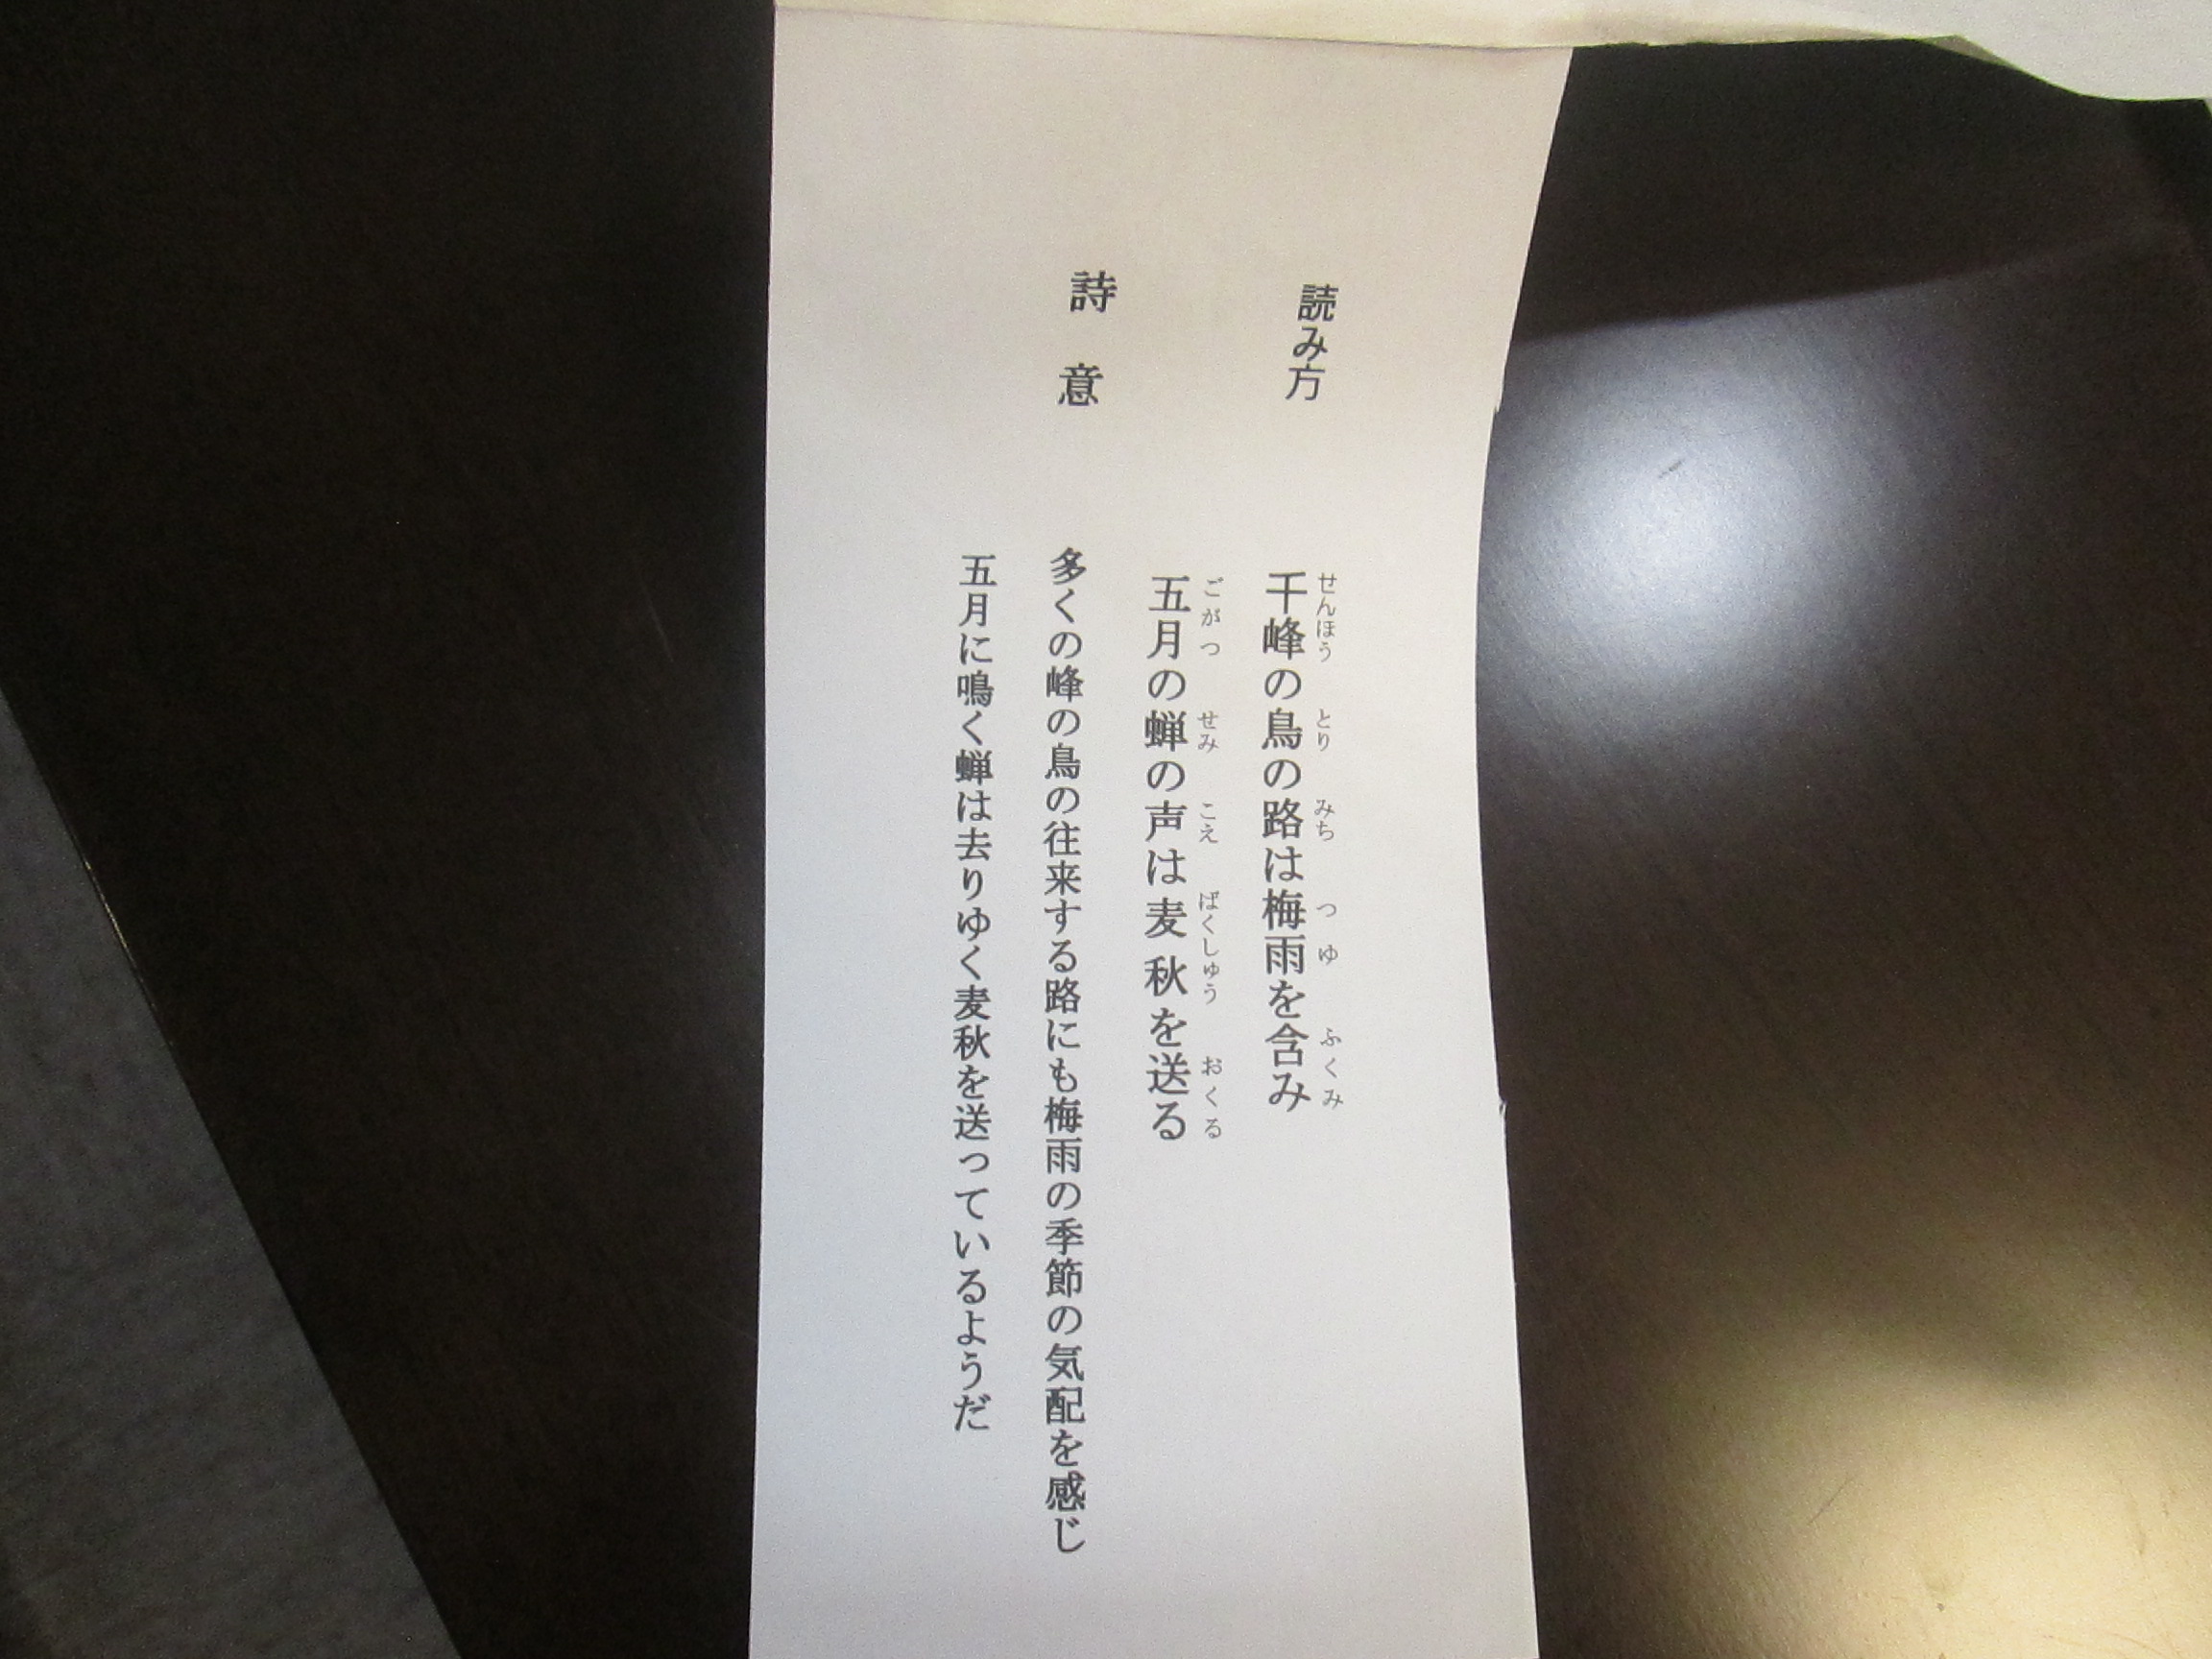 読み方
せんほう とり みち つゆ ふくみ
千峰の鳥の路は梅雨を含み
ごがつ せみ こえ ばくしゅう おくる
五月の蝉の声は麦秋を送る
詩意
多くの峰の鳥の往来する路にも梅雨の季節の気配を感じ
五月に鳴く蝉は去りゆく麦秋を送っているようだ